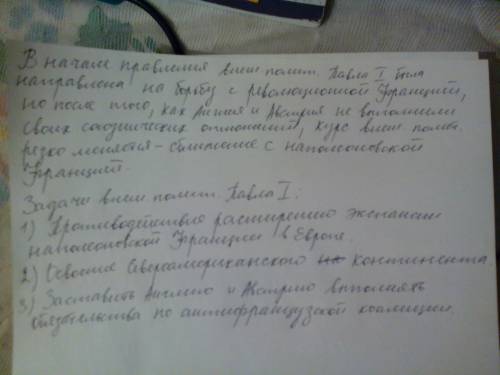 В начале правления внеш. полит. Павла I была
направлена на борьбу с революционной Францией,
но после того, как Англия и Австрия не выполнили
своих союднических отношений, курс внеш. полит.
резко меняется - сближение с наполеоновской
Францией.
Задачи внеш. полит. Павла I:
1) Противодействие расширению экспансии
наполеоновской Франции в Европе.
2) Освоение Североамериканского континента
3) Заставить Англию и Австрию выполнять
обязательства по антифранцузской коалиции.